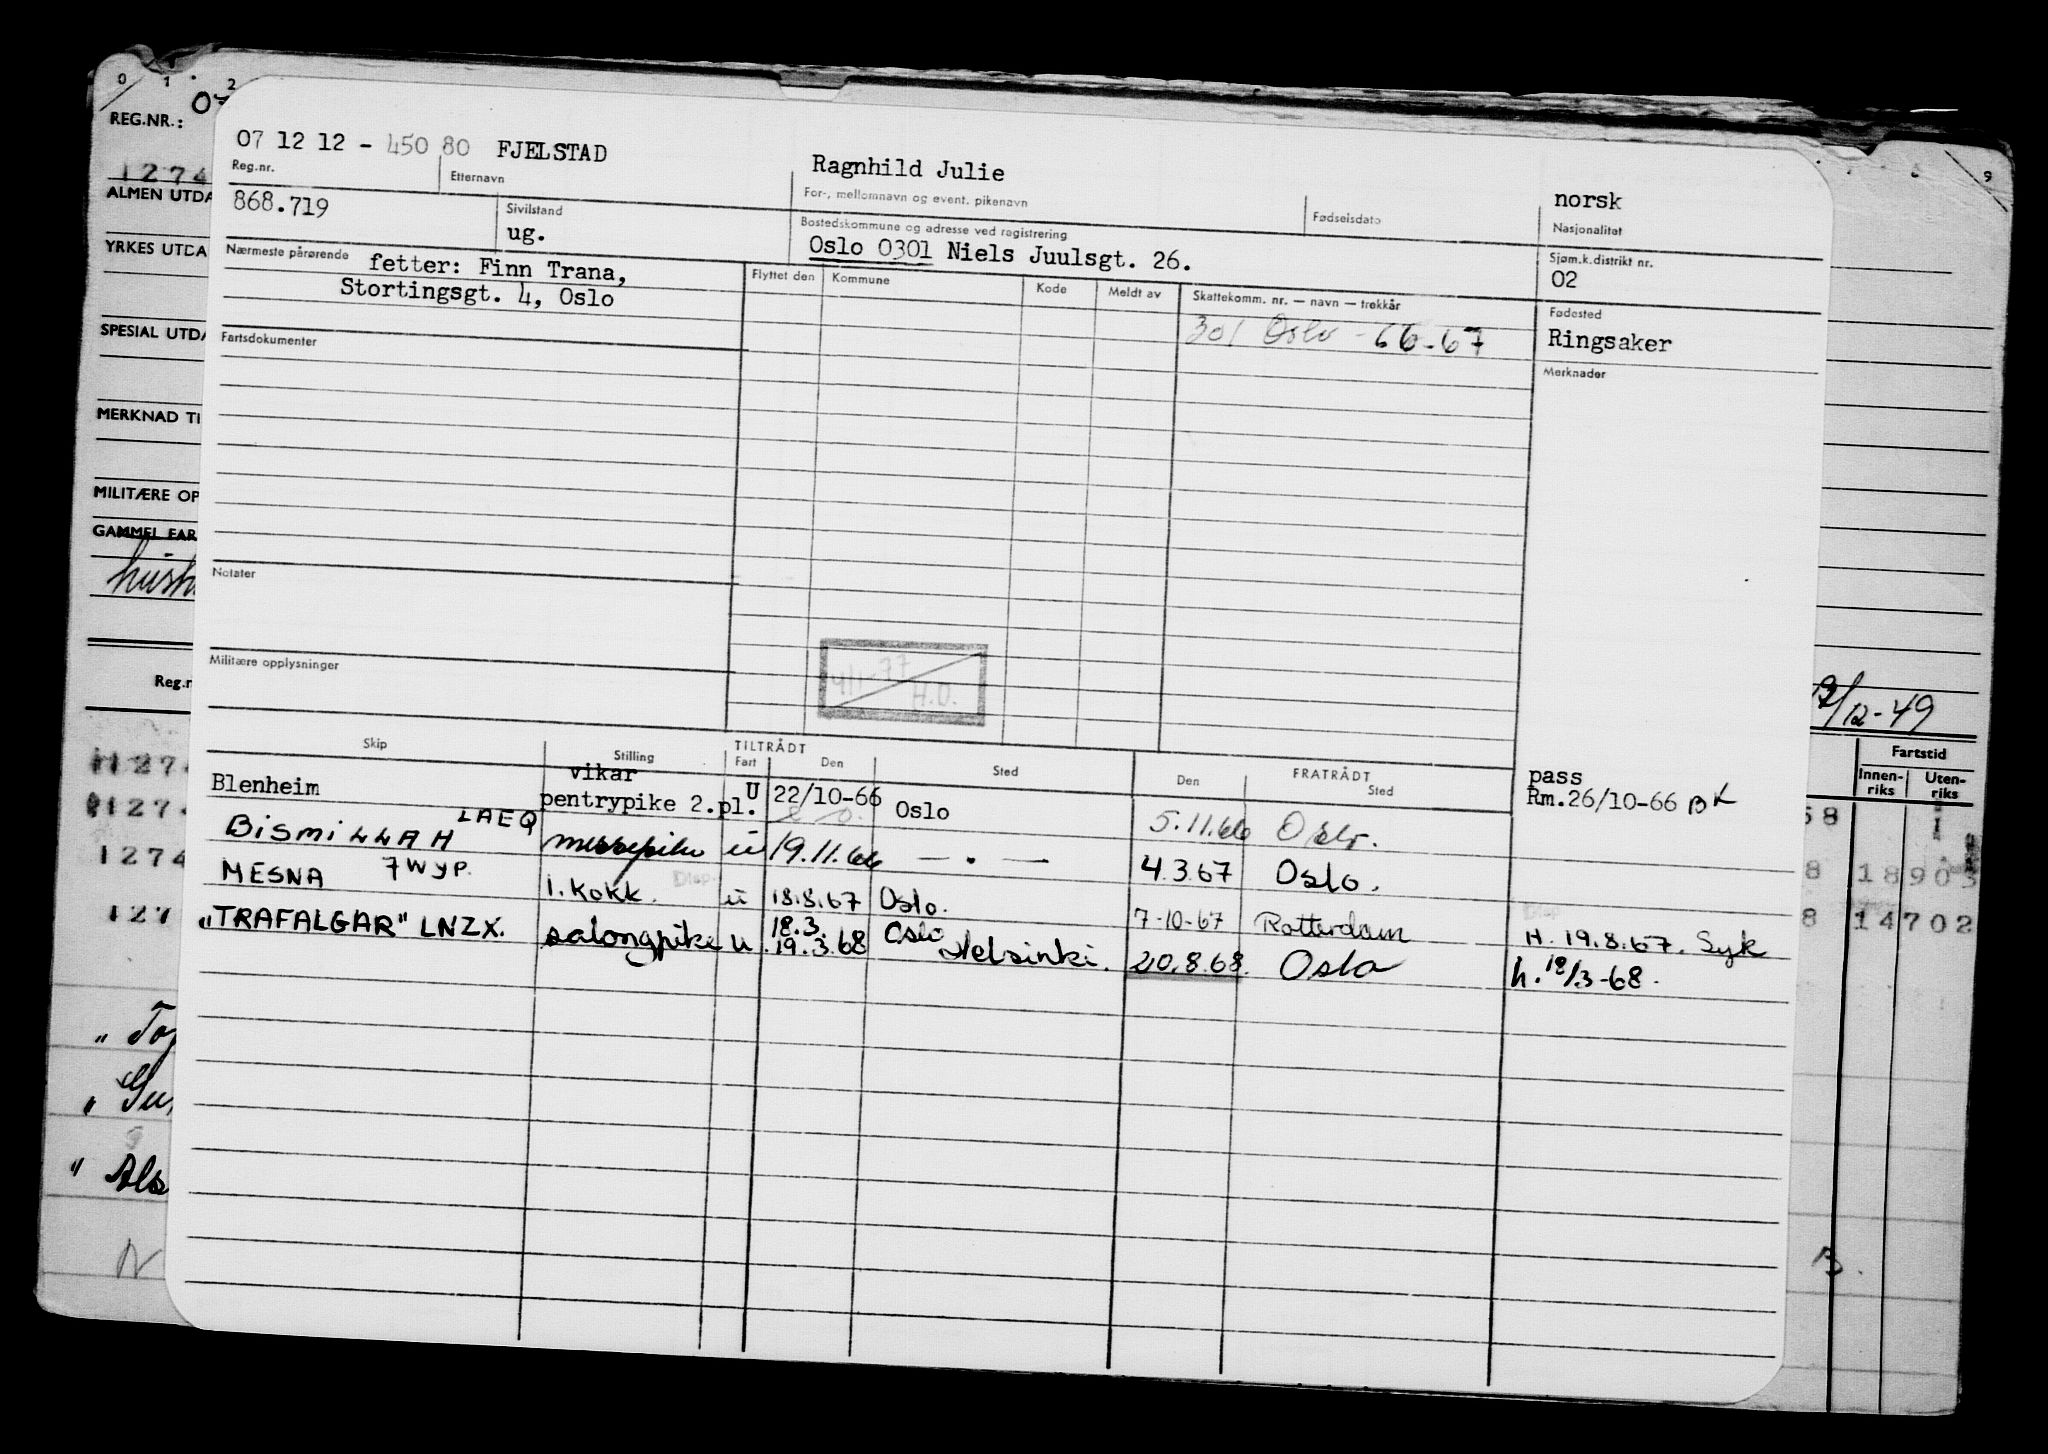 0 1 2
REG.NR.:
1274
ALMEN UTDA
YRKES UTDA
SPESIAL UTDA
MERKNAD TI
MILITÆRE OP
GAMMEL FAR
Reg.n
07 12 12 - 450 80 FJELSTAD Ragnhild Julie norsk
Reg.nr. Etternavn For-, mellomnavn og event. pikenavn Fødselsdato Nasjonalitet
868.719 Sivilstand ug. Bostedskommune og adresse ved registrering Sjøm.k.distrikt nr.
Oslo 0301 Niels Juulsgt. 26. 02
Nærmeste pårørende fetter: Finn Trana,
Stortingsgt. 4, Oslo
Flyttet den Kommune Kode Meldt av Skattekomm. nr. — navn — trekkår Fødested
301 Oslo - 66-67 Ringsaker
Fartsdokumenter Merknader
Notater
4/1-77 H.O.
Militære opplysninger
12/12-49
Skip Stilling TILTRÅDT Fart Den Sted Den FRATRÅDT Sted
Fartstid
Innen-riks Uten-riks
Blenheim vikar pentrypike 2.pl. U 22/10-66 Oslo 5.11.66 Oslo. pass Rm.26/10-66 BK
BISMILLAH LAEQ messepike u 19.11.66 — . — 4.3.67 Oslo.
MESNA 7WYP. 1. kokk. u 18.8.67 Oslo. 7-10-67 Rotterdam H. 19.8.67. Syk
"TRAFALGAR" LNZX. salongpike u 18.3. 19.3.68 Oslo Helsinki. 20.8.68. Oslo h. 18/3-68.
8 18903
8 14702